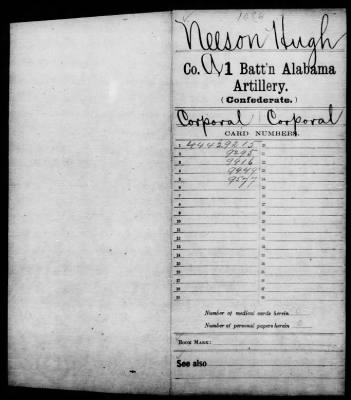 1086
Nelson Hugh
Co. A 1 Batt'n Alabama
Artillery.
(Confederate.)
Corporal Corporal
CARD NUMBERS.
1 44429215
2 9295
3 9916
4 9449
5 9577
6
7
8
9
10
11
12
13
14
15
16
17
18
Number of medical cards herein 0
Number of personal papers herein 0
BOOK MARK:
See also